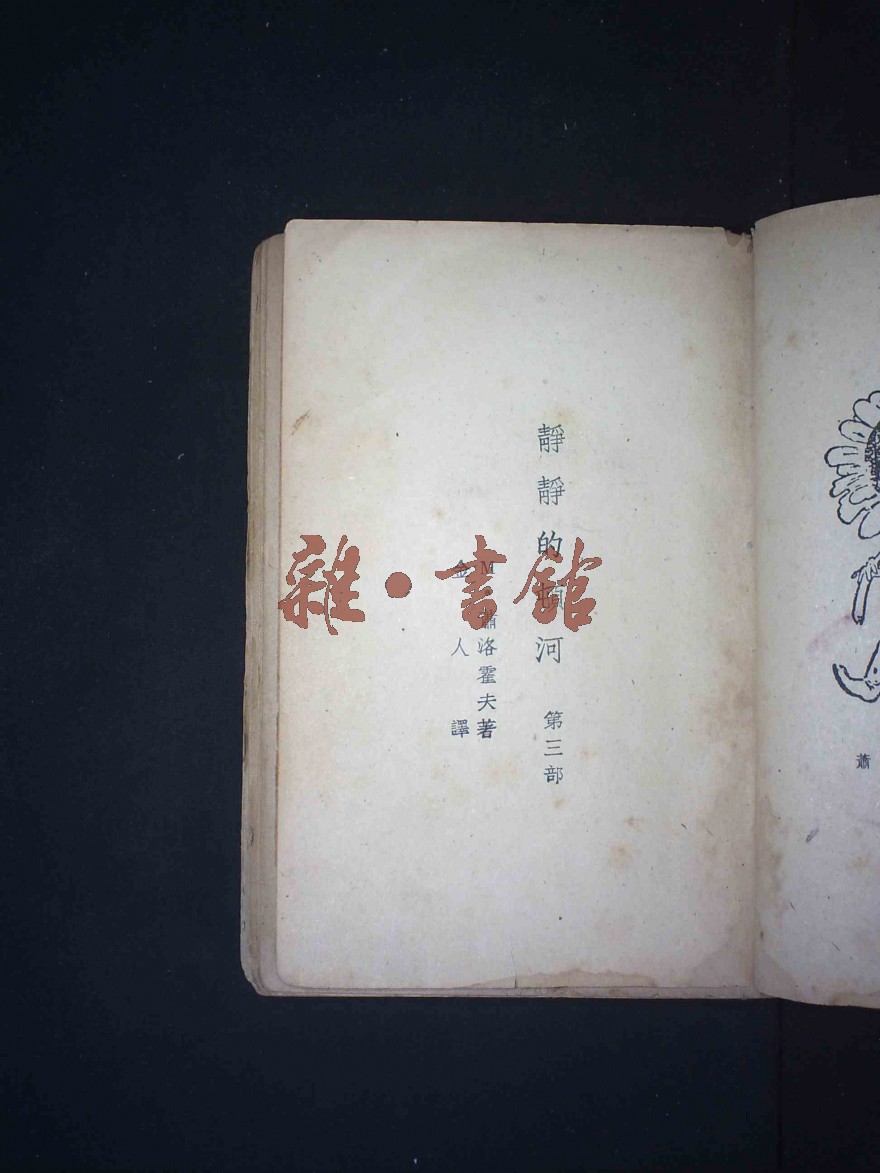 靜靜的頓河 第三部
M 蕭洛霍夫著
金人譯
雜·書館
蕭